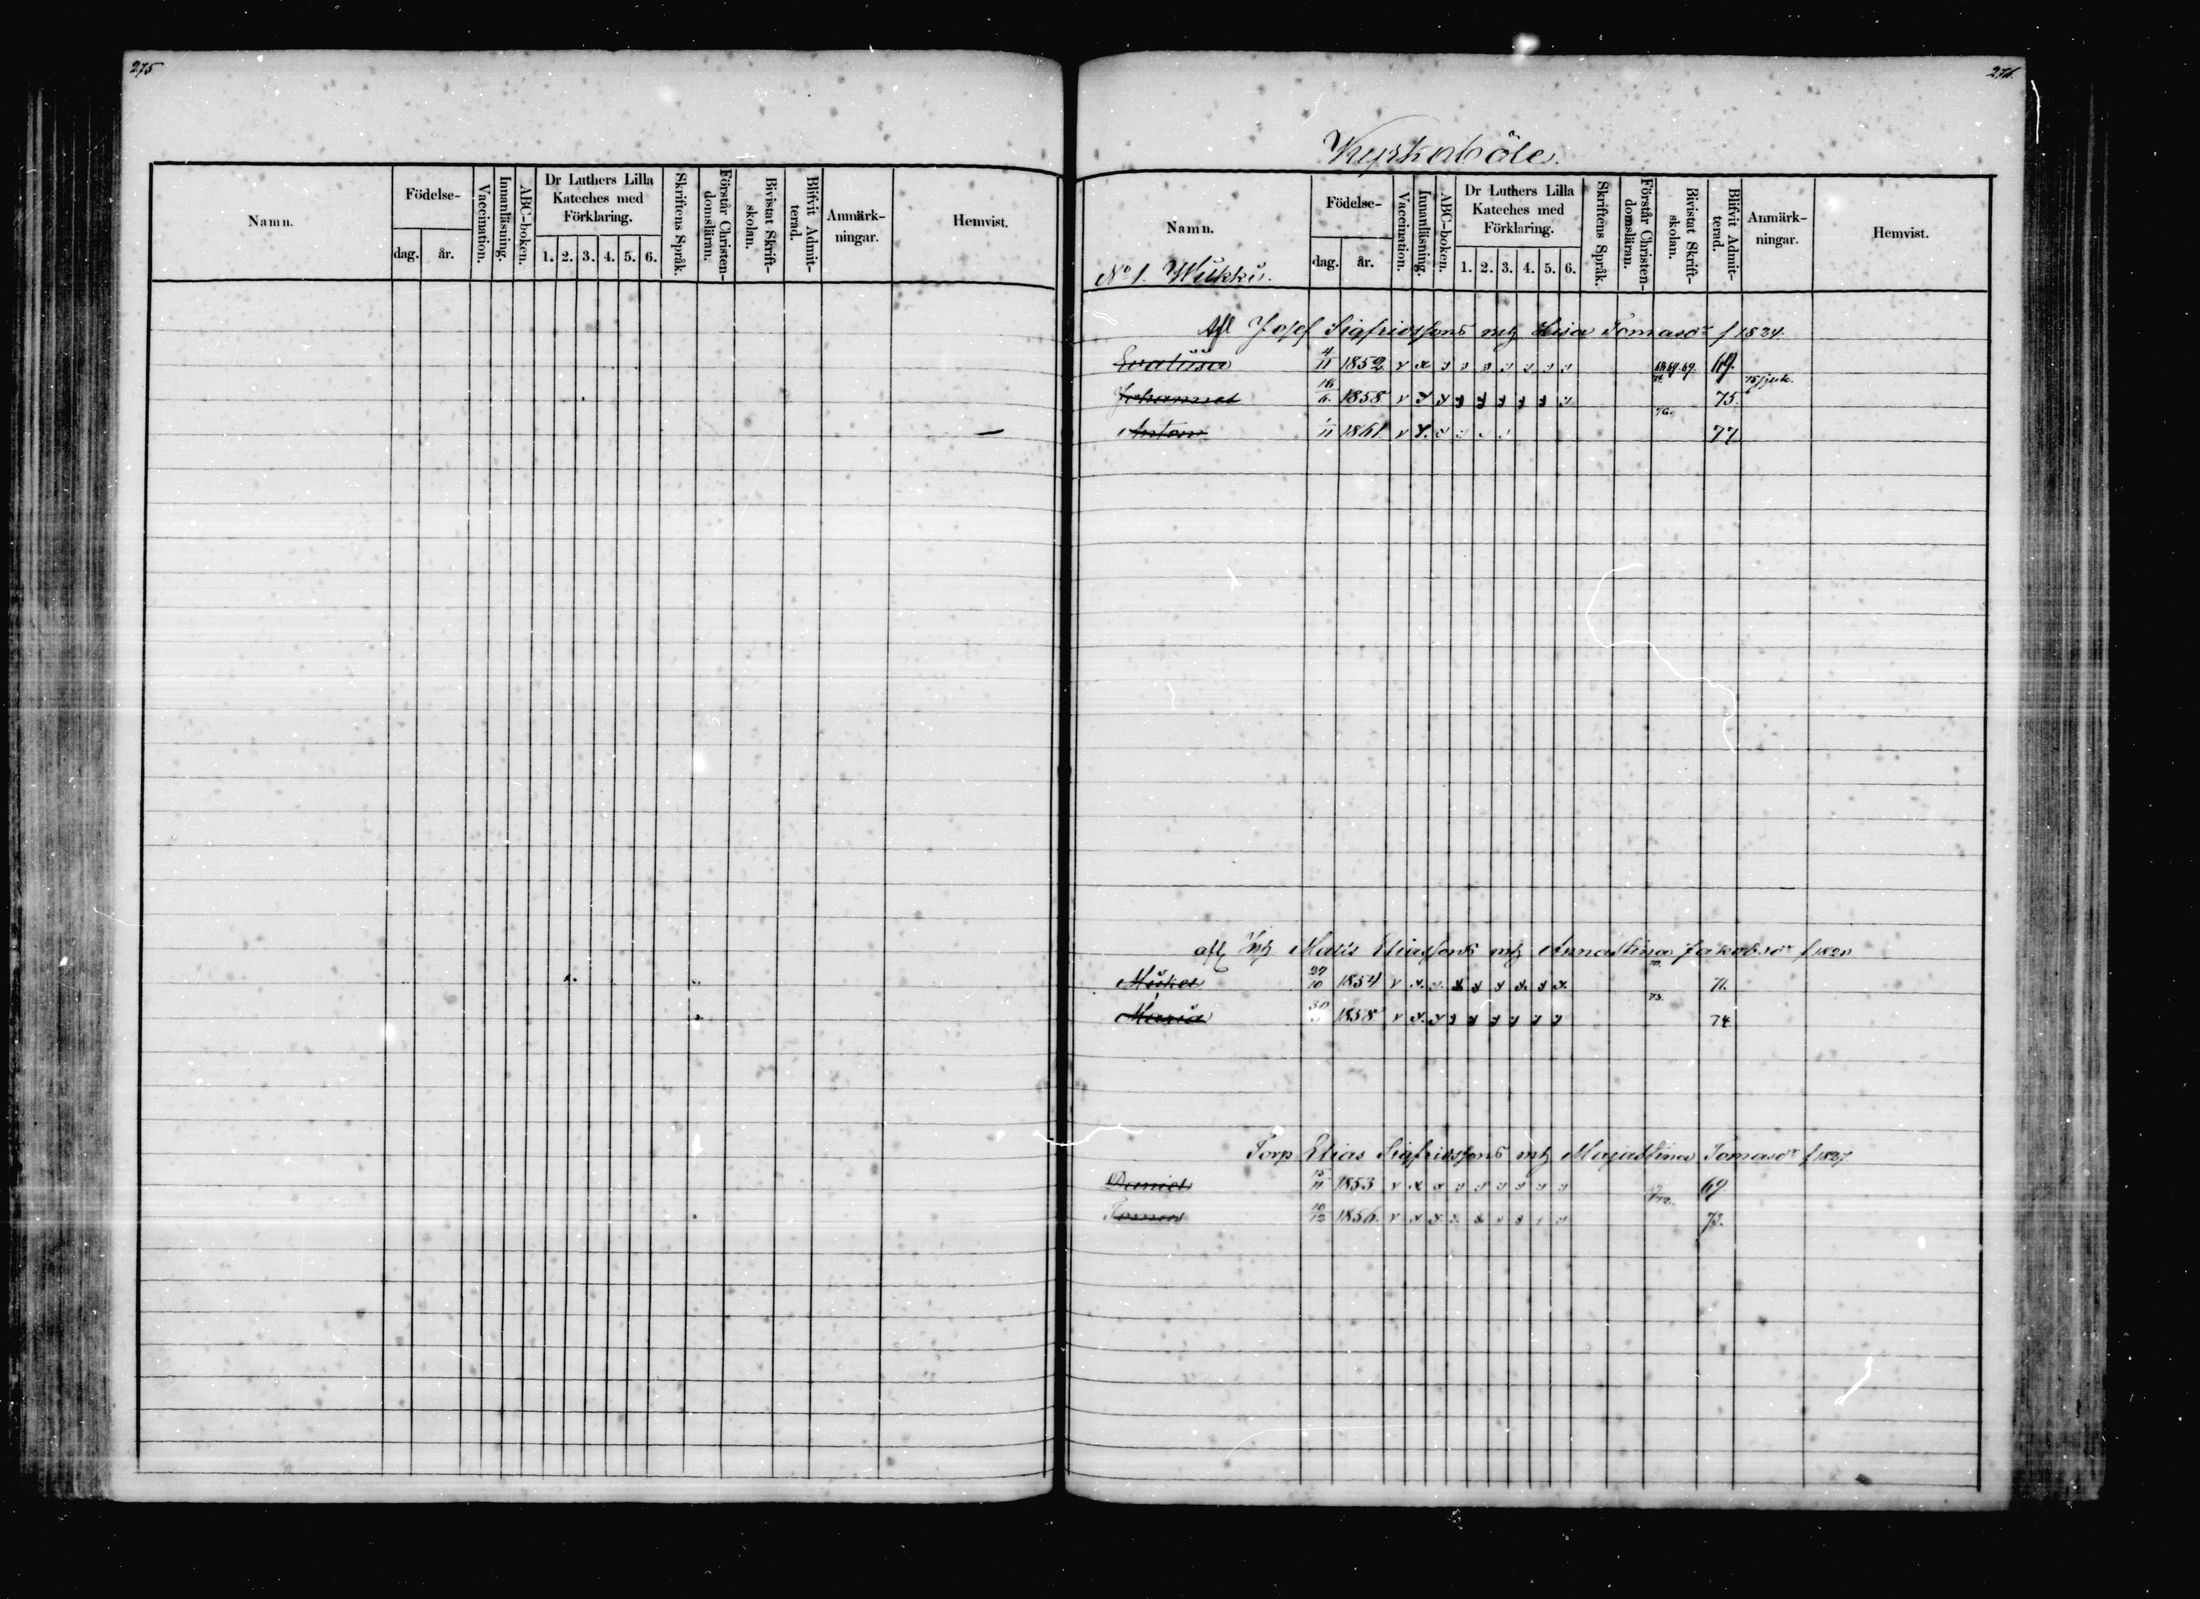 275
Namn. Födelse- dag. år. Vaccination. Innanläsning. ABC-boken. Dr Luthers Lilla Kateches med Förklaring. 1. 2. 3. 4. 5. 6. Skriftens Språk. Förstår Christendomsläran. Bivistat Skriftskolan. Blifvit Admitterad. Anmärkningar. Hemvist.
276.
Kyrkoböle.
Namn. Födelse- dag. år. Vaccination. Innanläsning. ABC-boken. Dr Luthers Lilla Kateches med Förklaring. 1. 2. 3. 4. 5. 6. Skriftens Språk. Förstår Christen-domsläran. Bivistat Skrift-skolan. Blifvit Admit-terad. Anmärk-ningar. Hemvist.
No 1. Wukku.
Josef Sigfridssons Lisa Tomasdr f 1824.
Evalüsa 4/11 1852 v 69.
Johannes 1858 v 75.
Anton 1/11 1861 v 77
Matts Eliassons Annastina Jakobsdr
27/10 1854 v 71.
Maria 1858 v 74
Torp Elias Sigfridssons Majastina Tomasdr f 1827
Daniel 15/11 1853 v 69.
Tomas 10/12 1856 v 73.